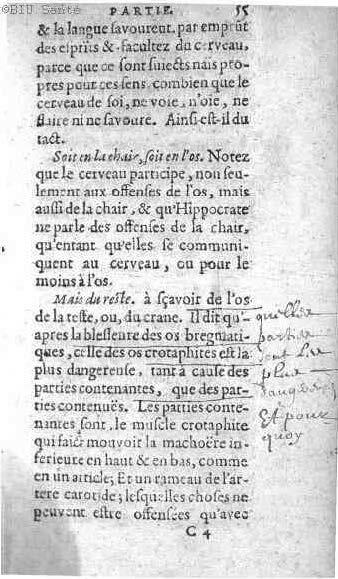 ©BIU Santé
PARTIE. 55
& la langue savourent, par emprūt
des esprits & facultez du cerveau,
parce que ce sont suiects nais pro-
pres pour ces sens combien que le
cerveau de soi, ne voie, n'oie, ne
flaire ni ne savoure. Ainsi est-il du
tact.
Soit en la chair, soit en l'os. Notez
que le cerveau participe, non seu-
lement aux offenses de l'os, mais
aussi de la chair, & qu'Hippocrate
ne parle des offenses de la chair,
qu'entant qu'elles se communi-
quent au cerveau, ou pour le
moins à l'os.
Mais du reste. à sçavoir de l'os
de la teste, ou, du crane. Il dit qu'-
apres la blesseure des os bregmati-
ques, celle des os crotaphites est la
plus dangereuse, tant à cause des
parties contenantes, que des par-
ties contenuës. Les parties conte-
nantes sont, le muscle crotaphite
qui faict mouvoir la machoëre in-
ferieure en haut & en bas, comme
en un article; Et un rameau de l'ar-
tere carotide; lesquelles choses ne
peuvent estre offensées qu'avec
C 4
quelles
parties
sont les
plus
dangere
Et pour
quoy